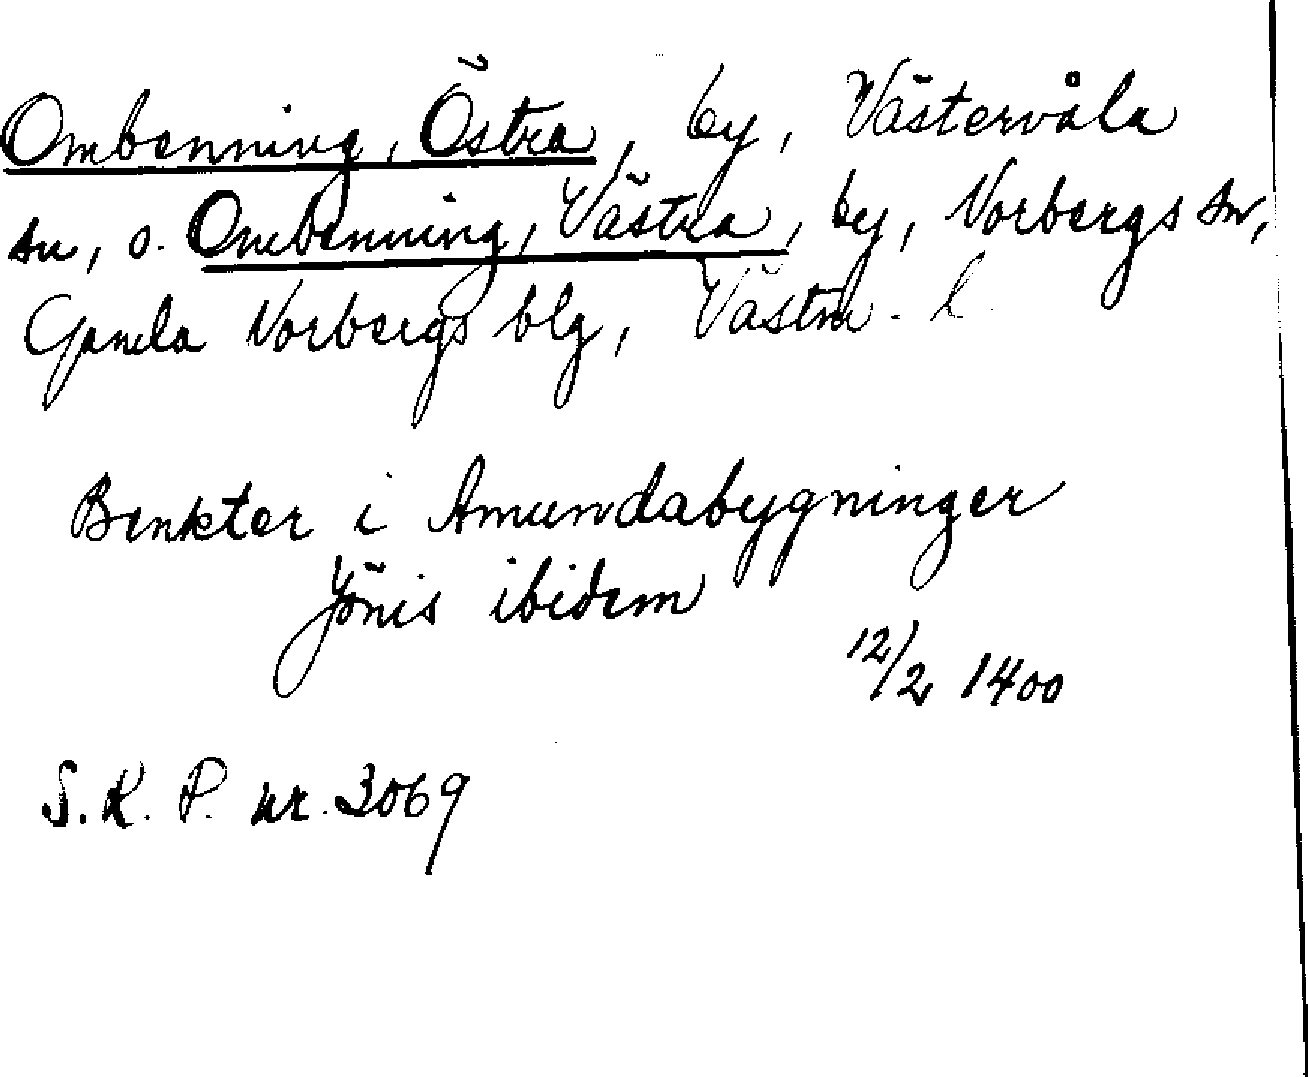 Ombenning, Östra, by, Västervåla
sn, o. Ombenning, Västra, by, Norbergs sn,
Gamla Norbergs blg, Västm. l.
Benkter i Amundabygninger
Jönis ibidem
12/2 1400
S.R.P. nr. 3069